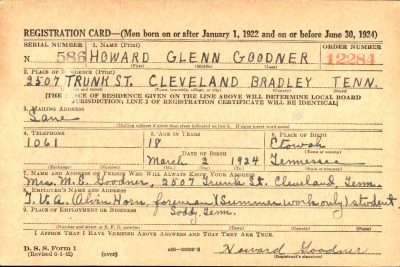 REGISTRATION CARD—(Men born on or after January 1, 1922 and on or before June 30, 1924)
SERIAL NUMBER 1. NAME (Print) ORDER NUMBER
N 586 HOWARD GLENN GOODNER 12284
(First) (Middle) (Last)
2. PLACE OF RESIDENCE (Print)
2507 TRUNK ST. CLEVELAND BRADLEY TENN.
(Number and street) (Town, township, village, or city) (County) (State)
[THE PLACE OF RESIDENCE GIVEN ON THE LINE ABOVE WILL DETERMINE LOCAL BOARD
JURISDICTION; LINE 2 OF REGISTRATION CERTIFICATE WILL BE IDENTICAL]
3. MAILING ADDRESS
Same
[Mailing address if other than place indicated on line 2. If same insert word same]
4. TELEPHONE 5. AGE IN YEARS 6. PLACE OF BIRTH
1061 18 Etowah
DATE OF BIRTH (Town or county)
March 2 1924 Tennessee
(Mo.) (Day) (Yr.) (State or country)
7. NAME AND ADDRESS OF PERSON WHO WILL ALWAYS KNOW YOUR ADDRESS
Mrs. M. E. Goodner, 2507 Trunk St. Cleveland, Tenn.
8. EMPLOYER'S NAME AND ADDRESS
T.V.A. (Alvin Horn, foreman) (Summer work only) student
9. PLACE OF EMPLOYMENT OR BUSINESS
Soddy, Tenn.
(Number and street or R. F. D. number) (Town) (County) (State)
I AFFIRM THAT I HAVE VERIFIED ABOVE ANSWERS AND THAT THEY ARE TRUE.
D. S. S. Form 1
(Revised 6-9-42) (over) Howard Goodner
(Registrant's signature)